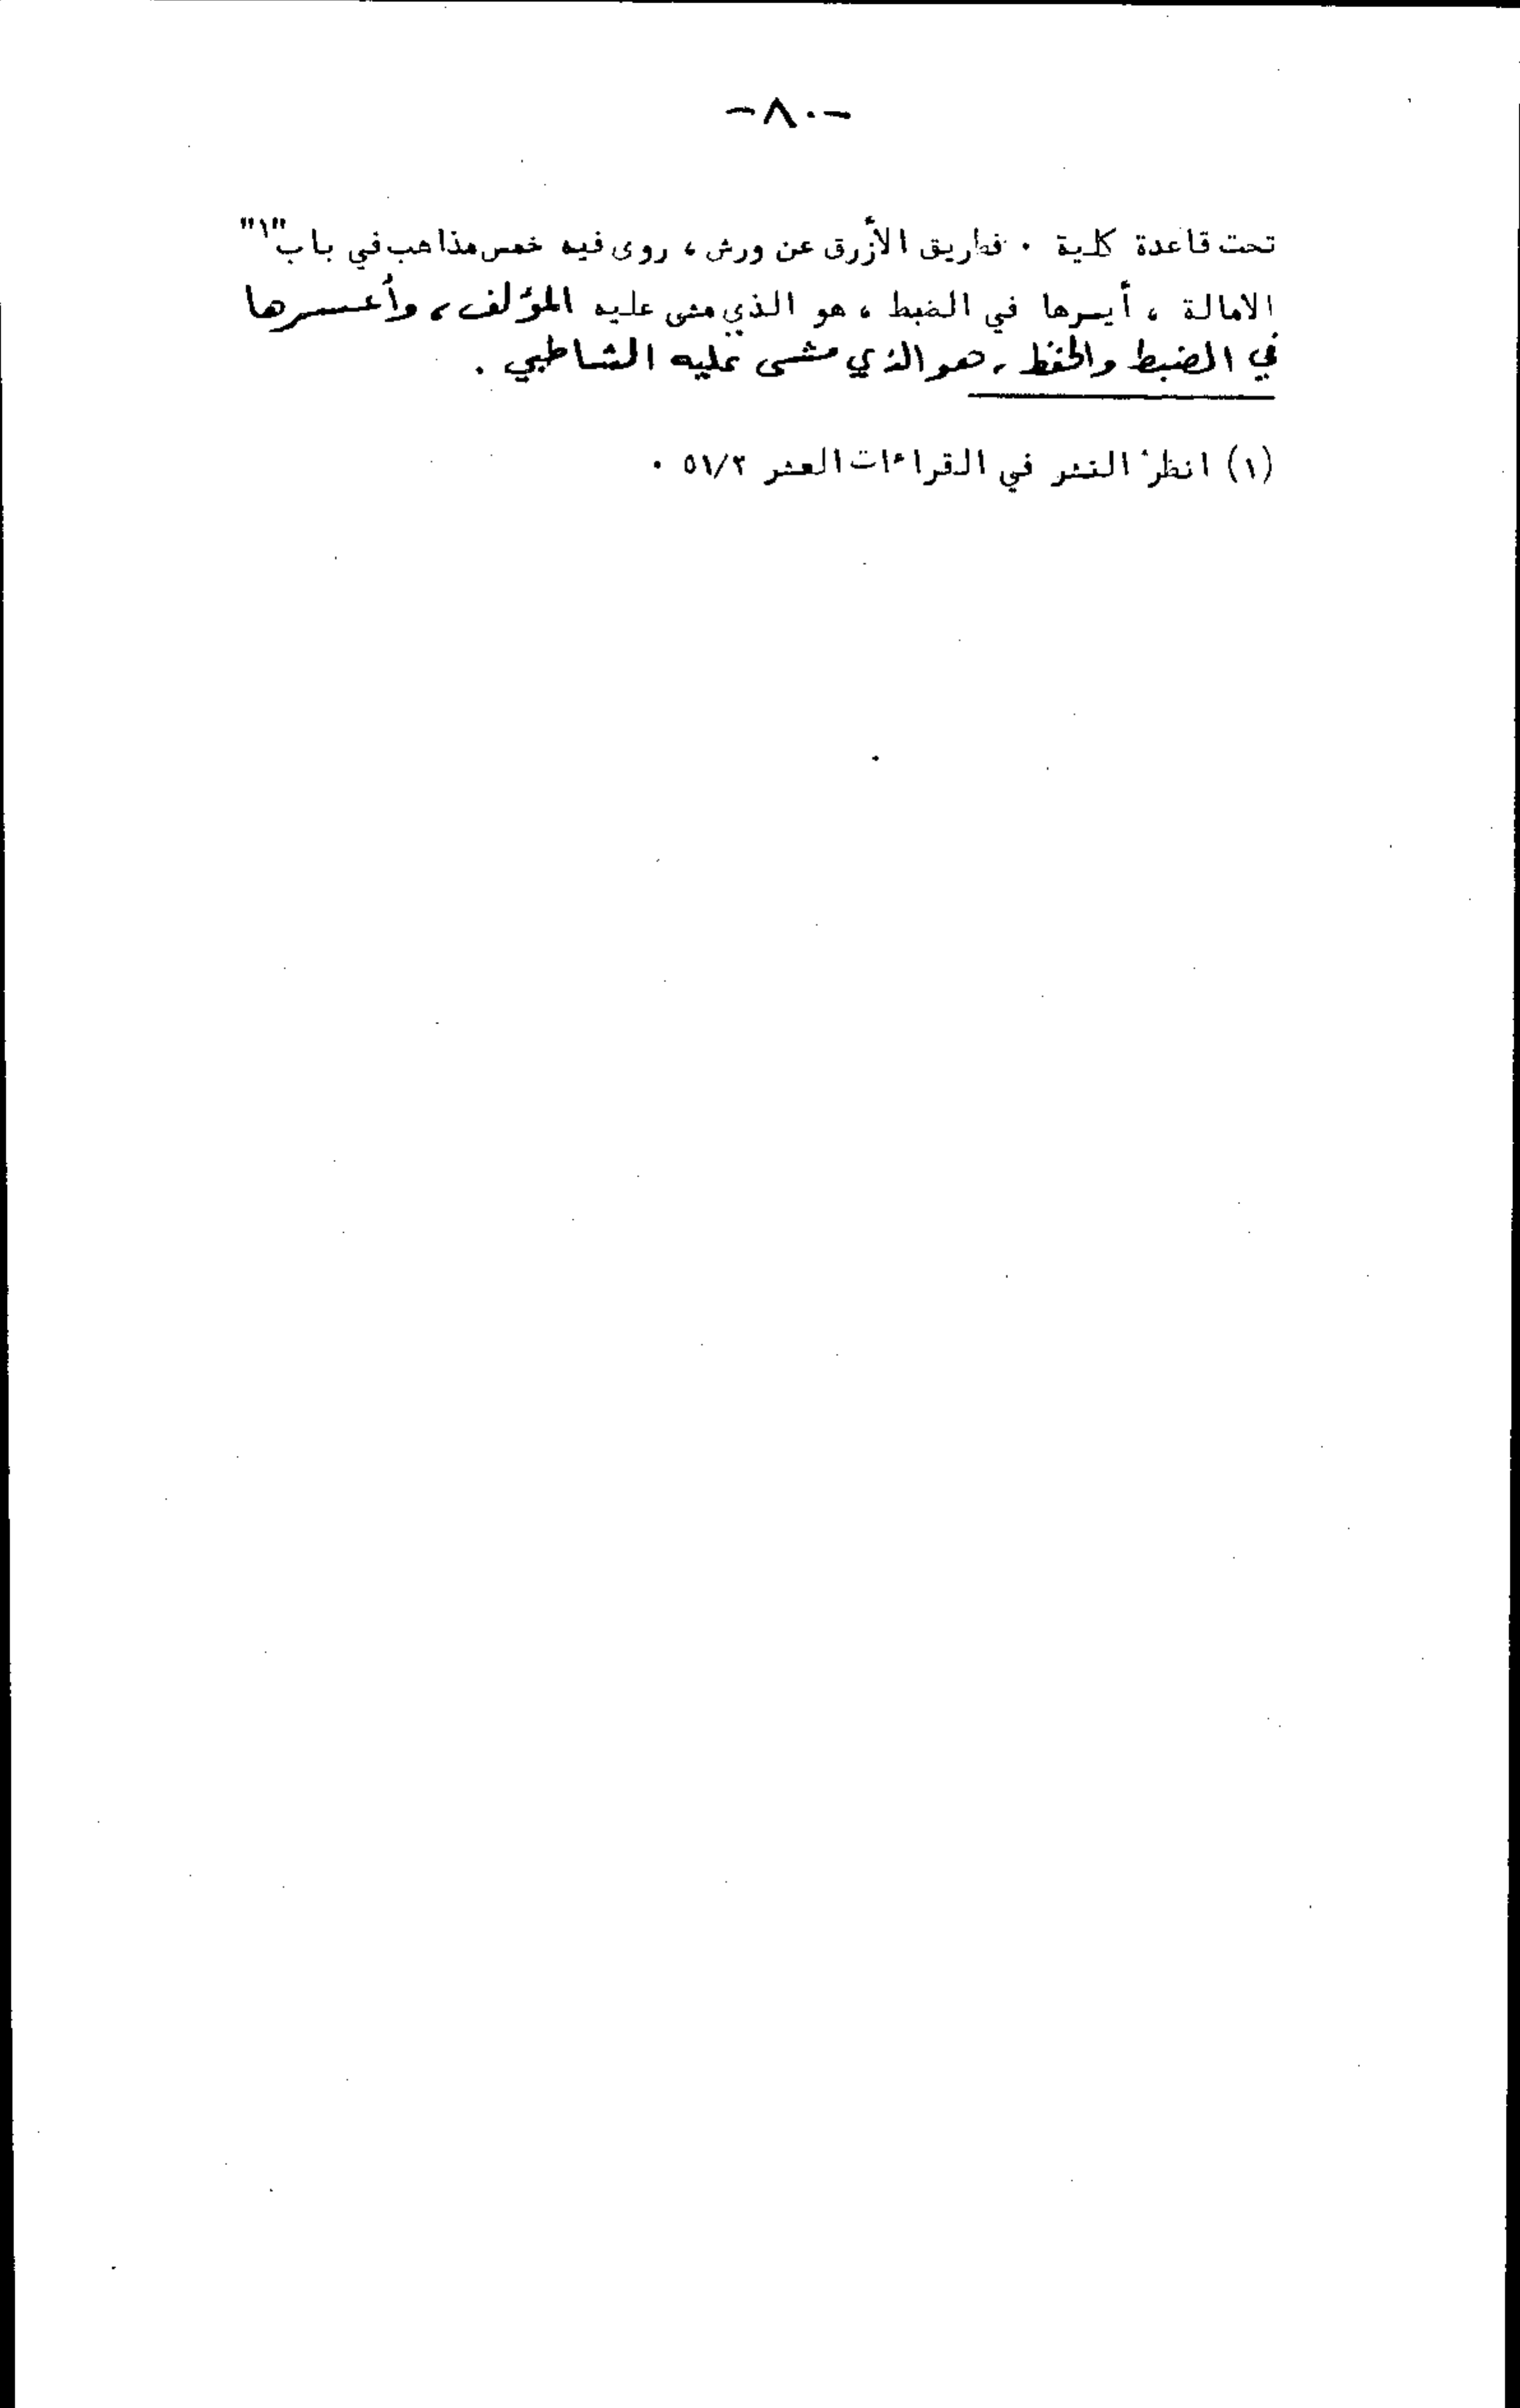 -٨٠-
تحت قاعدة كلية ٠ فطريق الأزرق عن ورش ، روى فيه خمس مذاهب في باب"١"
الامالة ، أيسرها في الضبط ، هو الذي مشى عليه المؤلف ، وأعسرها
في الضبط والحفظ ، هو الذي مشى عليه الشاطبي .
(١) انظر النشر في القراءات العشر ٥١/٢ ٠